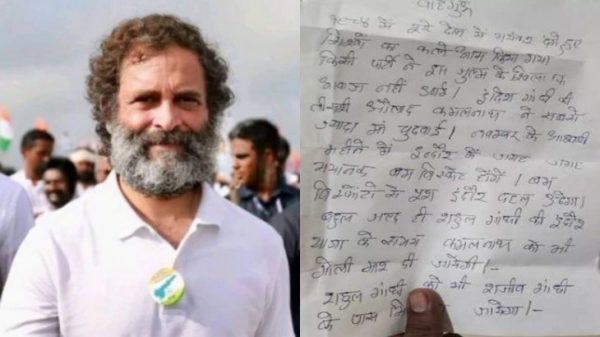 वाहेगुरु
में पूरे देश में भयंकर दंगे हुए
सिखों का कत्ले आम किया गया
किसी पार्टी ने इस जुल्म के खिलाफ
आवाज नहीं । इंदिरा गांधी की
कमलनाथ ने सबसे
ज्यादा । नवम्बर के आखरी
महीने में इन्दौर में जगह जगह
भयानक बम विस्फोट होंगे। बम
विस्फोटों से पूरा इंदौर दहल उठेगा।
बहुत जल्द ही राहुल गांधी की इंदौर
यात्रा के समय कमलनाथ को भी
गोली मार दी जायेगी।-
राहुल गांधी को भी राजीव गांधी
के पास जायेगा।-